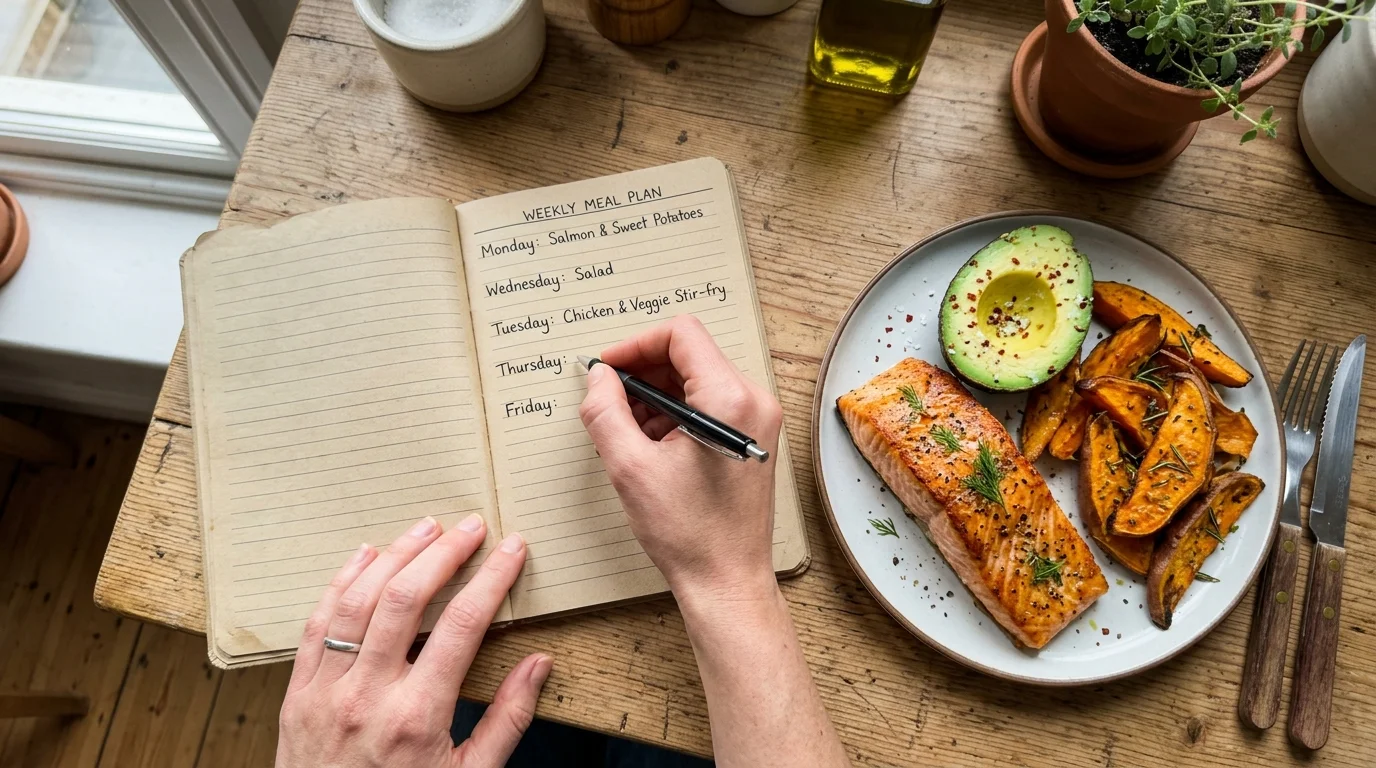 WEEKLY MEAL PLAN
Monday: Salmon & Sweet Potatoes
Wednesday: Salad
Tuesday: Chicken & Veggie Stir-fry
Thursday:
Friday: